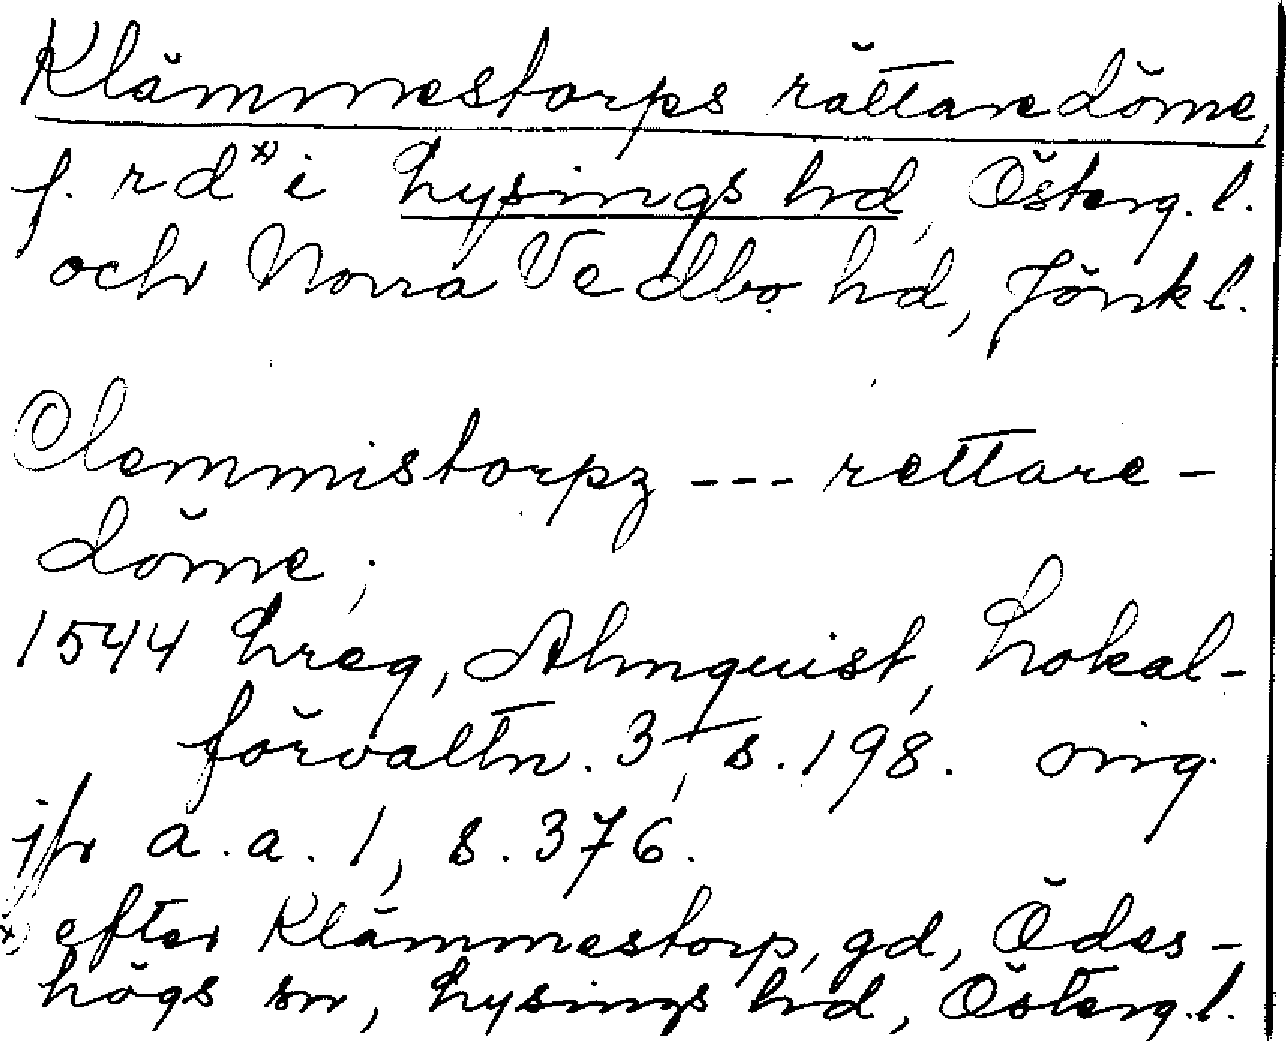 Klämmestorps rättaredöme,
f. rd x) i Lysings hd, Österg. l.
och Norra Vedbo hd, Jönk l.
Clemmistorpz --- rettare-
döme;
1544 Lreg, Almquist, Lokal-
förvaltn. 3, s. 198. orig.
jfr a.a. 1, s. 376.
x) efter Klämmestorp, gd, Ödes-
högs sn, Lysings hd, Österg. l.